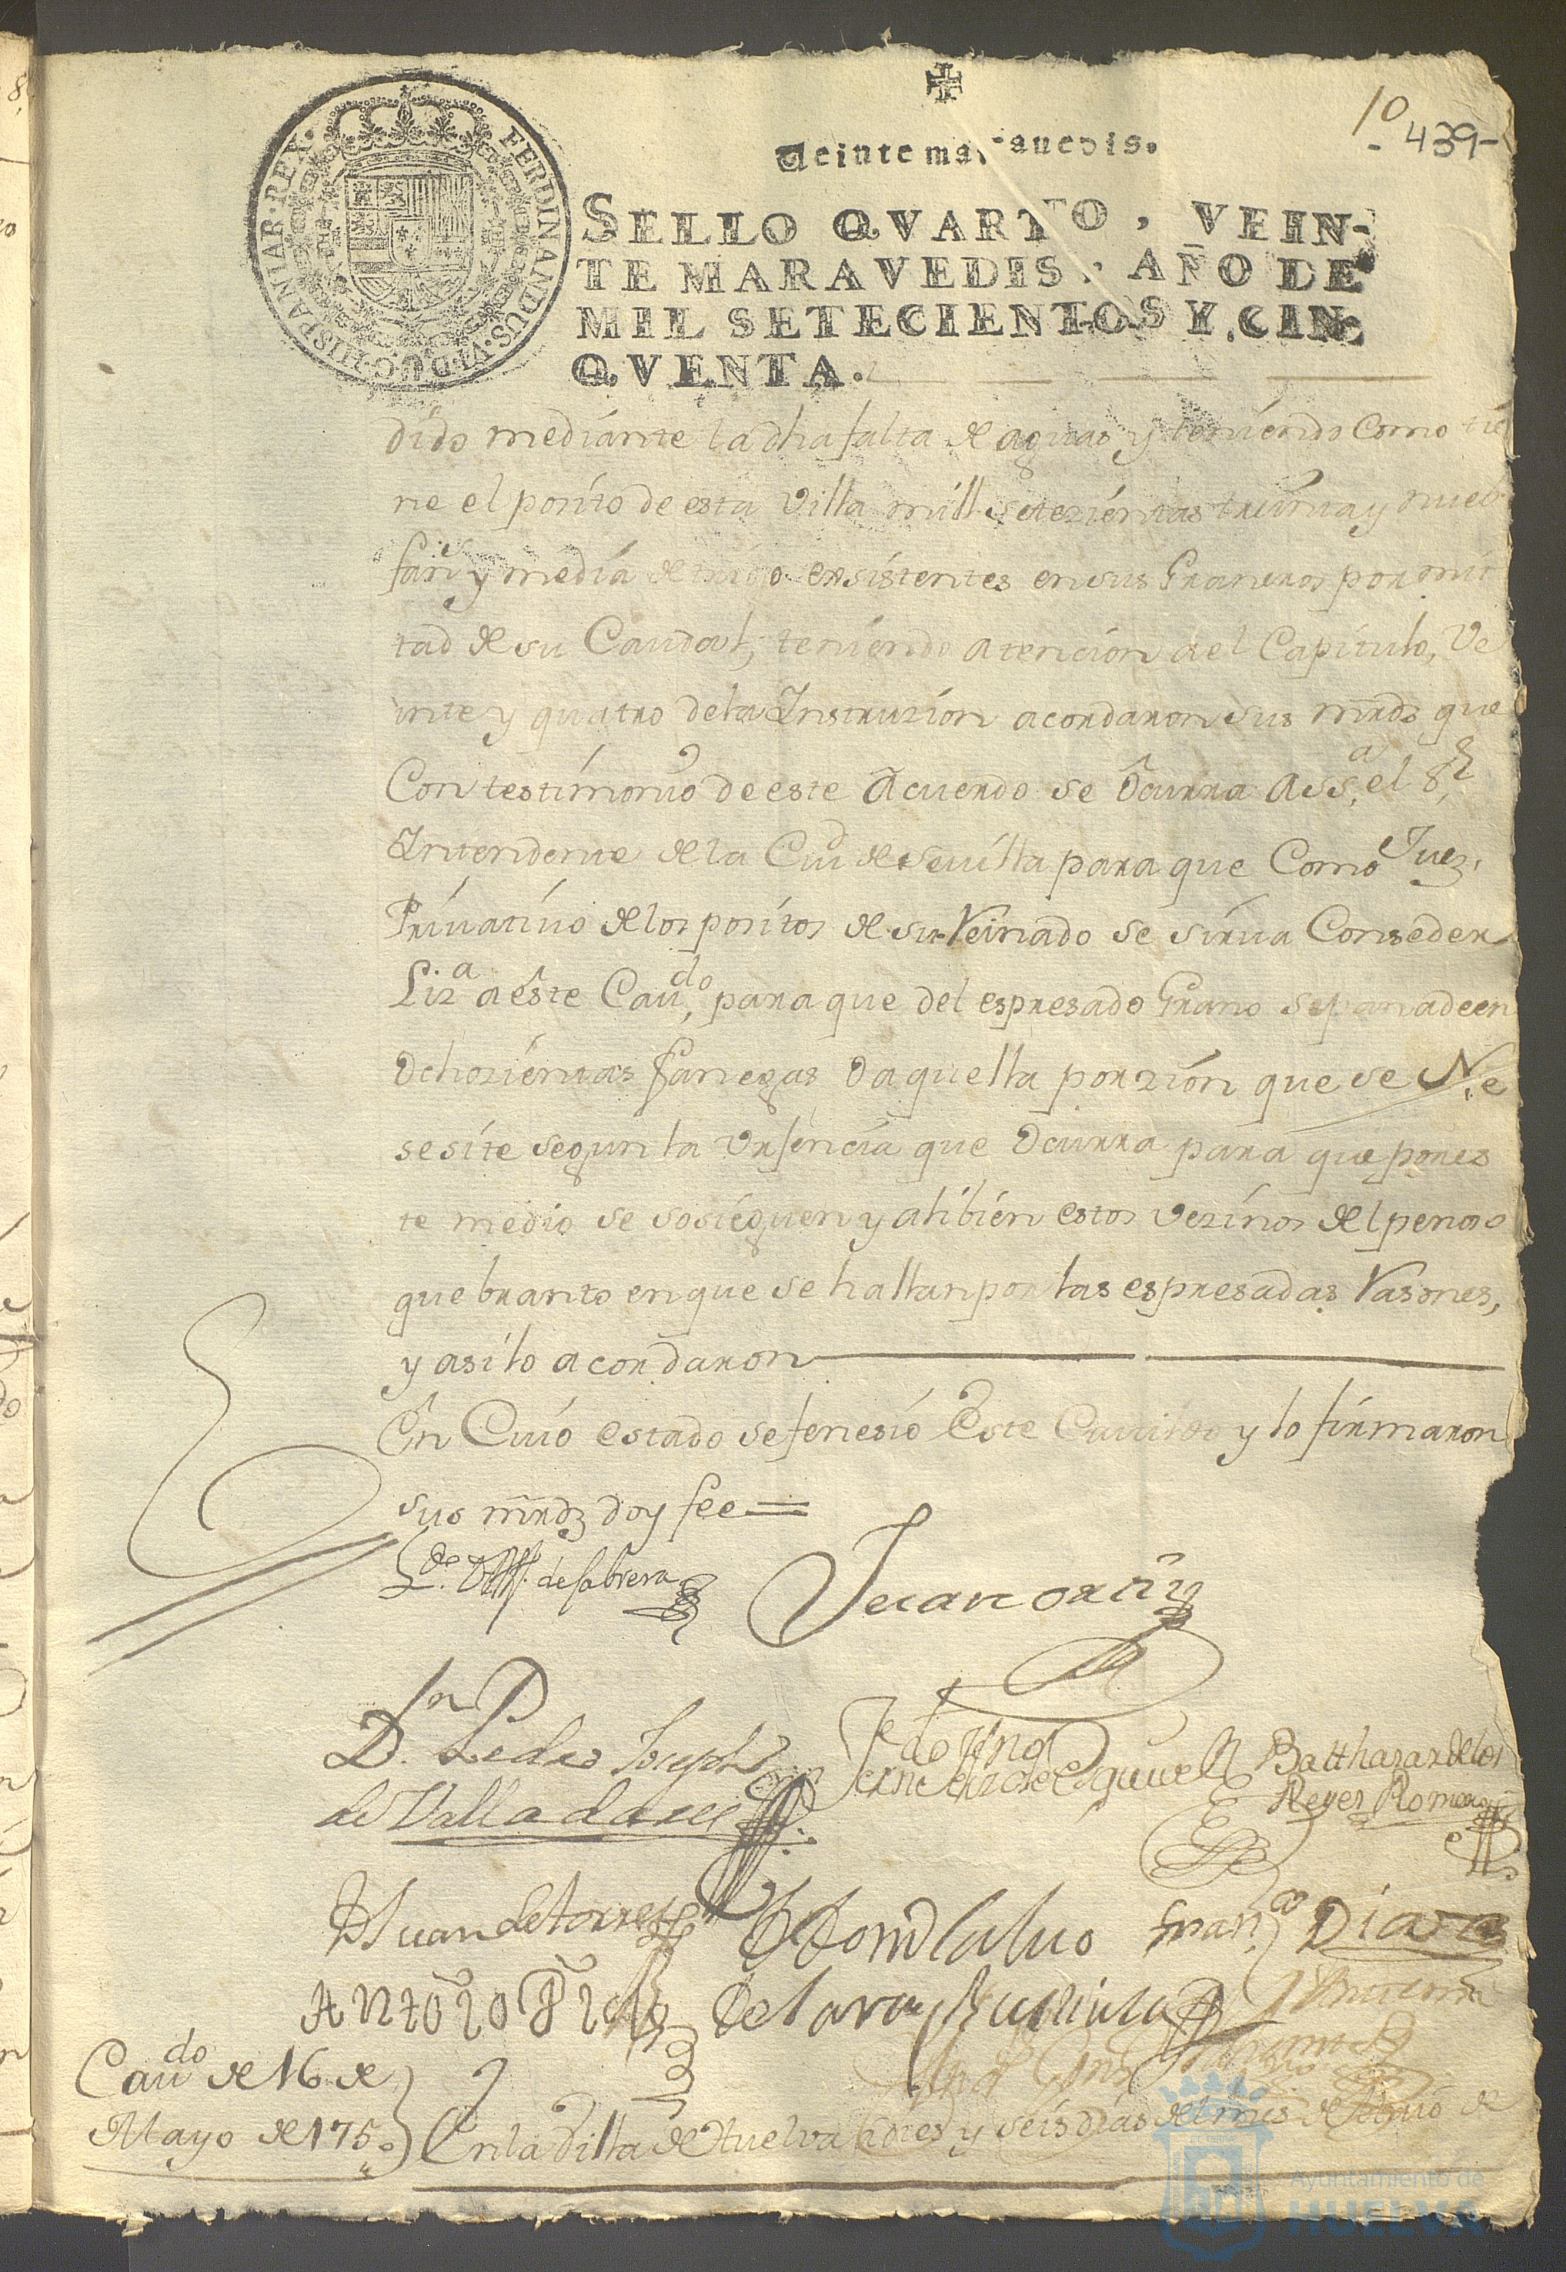 10
-439-
Veinte maravedis.
SELLO QVARTO, VEIN-
TE MARAVEDIS, AÑO DE
MIL SETECIENTOS Y CIN
QVENTA.
FERDINANDUS·VI·D·G·HISPANIAR·REX·
dido mediante la dha falta de aguas y teniendo Como tie
ne el posito de esta Villa mill setezientas treinta y nueb
fans y media de trigo exsistentes en sus Graneros por mi
tad de su Caudal, teniendo atencion a el Capitulo, Ve
inte y quatro de la Instruzion acordaron sus mrds que
Con testimonio de este Acuerdo se Ocurra A ssa, el Sr
Intendente de la Ciud de Sevilla para que Como Juez,
Privativo de los positos de su Reinado se sirva Conseder
Liza a este Cavdo, para que del espresado Grano separade en
Ochozientas Fanegas O aquella porzion que se Ne
sesite segun la Urjencia que Ocurra para que por es
te medio se sosieguen y alibien estos vezinos del penoso
quebranto en que se hallan por las espresadas Rasones,
y asi lo acordaron
En Cuio estado se fenesio Este Cavildo y lo firmaron
sus mrds doy fee=
Ldo de Cabrera
Juan ortiz
Dn Pedro Joseph
de Valladares
Esquivel
Balthazar de los
Reyes Romero
Juan de torres
Calvo
Franco Diaz
Antonio
de lara
Cavdo de 16 de
Mayo de 1750
En la Villa de Huelva a dies y seis dias del mes de Maio de
Ayuntamiento de
HUELVA